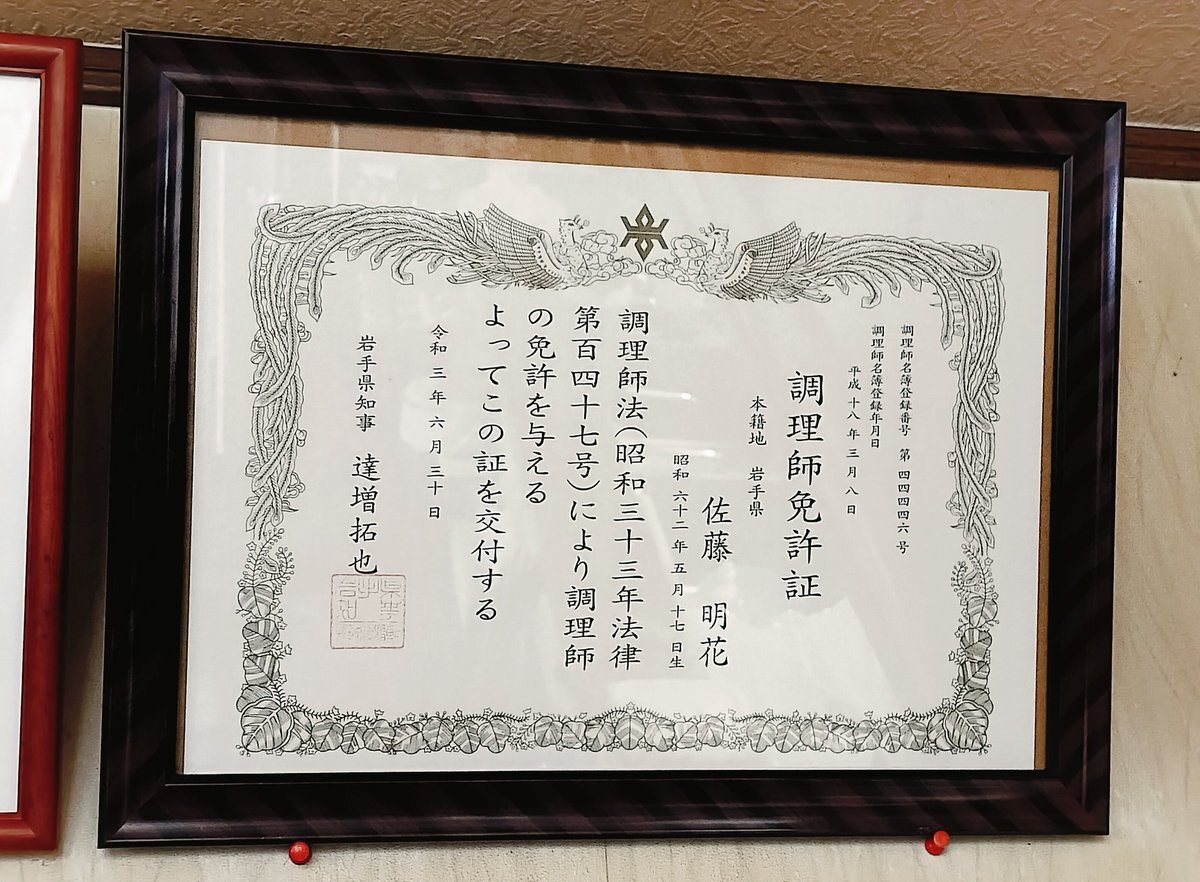 調理師名簿登録番号 第 四四四四六 号
調理師名簿登録年月日
平成 十八 年 三 月 八 日
調理師免許証
本籍地 岩手県
佐藤 明花
昭和 六十二 年 五 月 十七 日生
調理師法(昭和三十三年法律
第百四十七号)により調理師
の免許を与える
よってこの証を交付する
令和 三 年 六 月 三十 日
岩手県知事 達増拓也